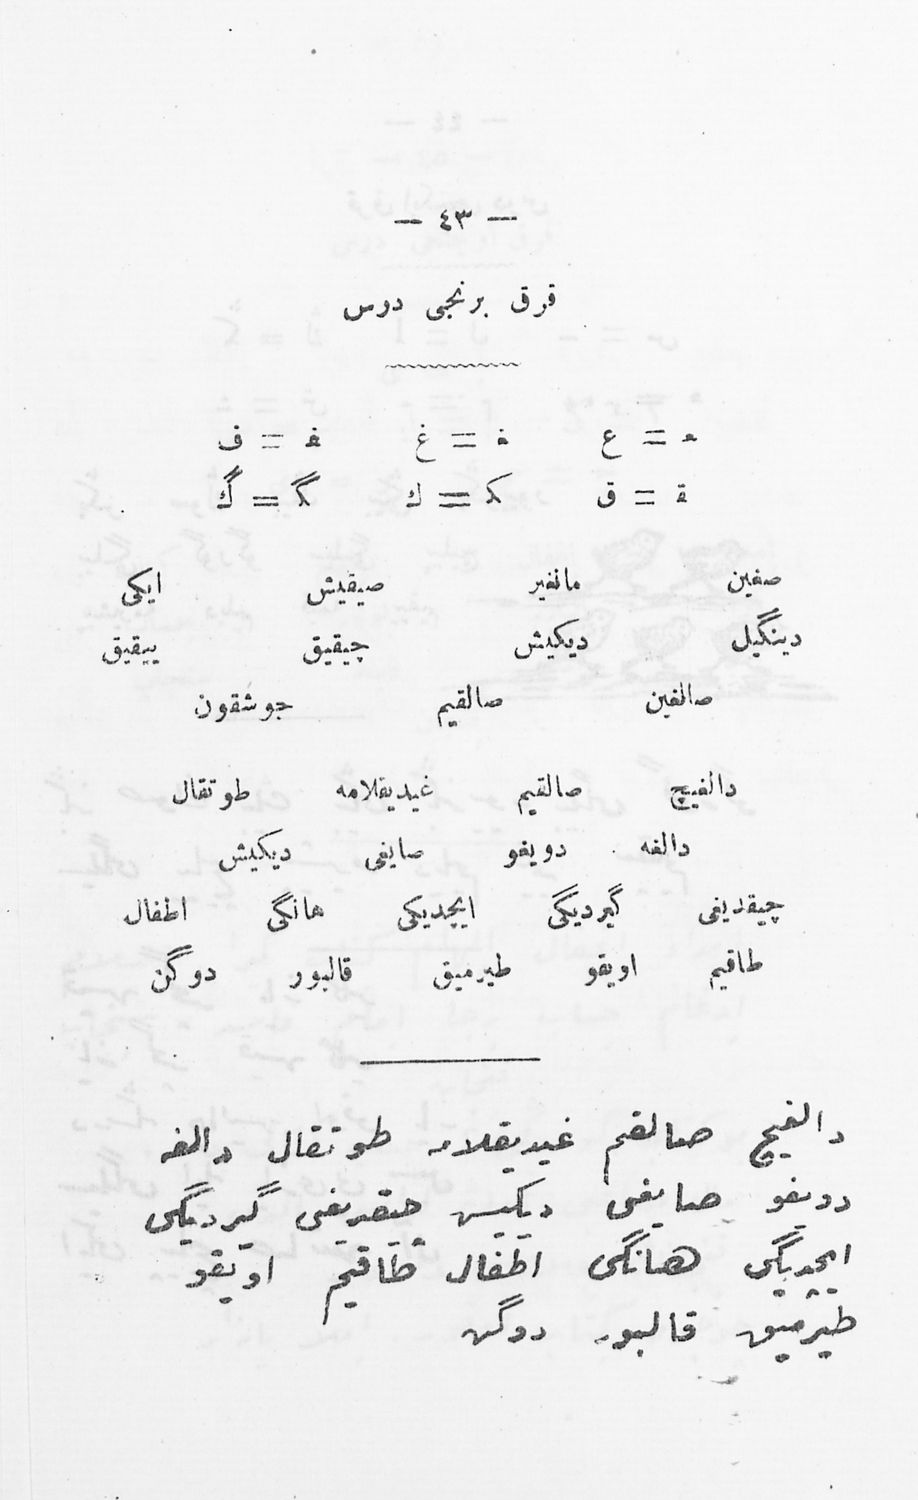 — ٤٣ —
قرق برنجی درس
ـعـ = ع ـغـ = غ ـفـ = ف
ـقـ = ق كـ = ك گـ = گ
صغین مانغیر صیقیش ایكی
دینگیل دیكیش چیقیق ییقیق
صالغین صالقیم جوشقون
دالغیچ صالقیم غیدیقلامه طوتقال
دالغه دویغو صایغی دیكیش
چیقدیغی گیردیگی ایچدیكی هانگی اطفال
طاقیم اویقو طیرمیق قالبور دوگن
دالغیچ صالقم غیدیقلامه طوتقال دالغه
دویغو صایغی دیكیش چیقدیغی گیردیگی
ایچدیگی هانگی اطفال طاقیم اویقو
طیرمیق قالبور دوگن